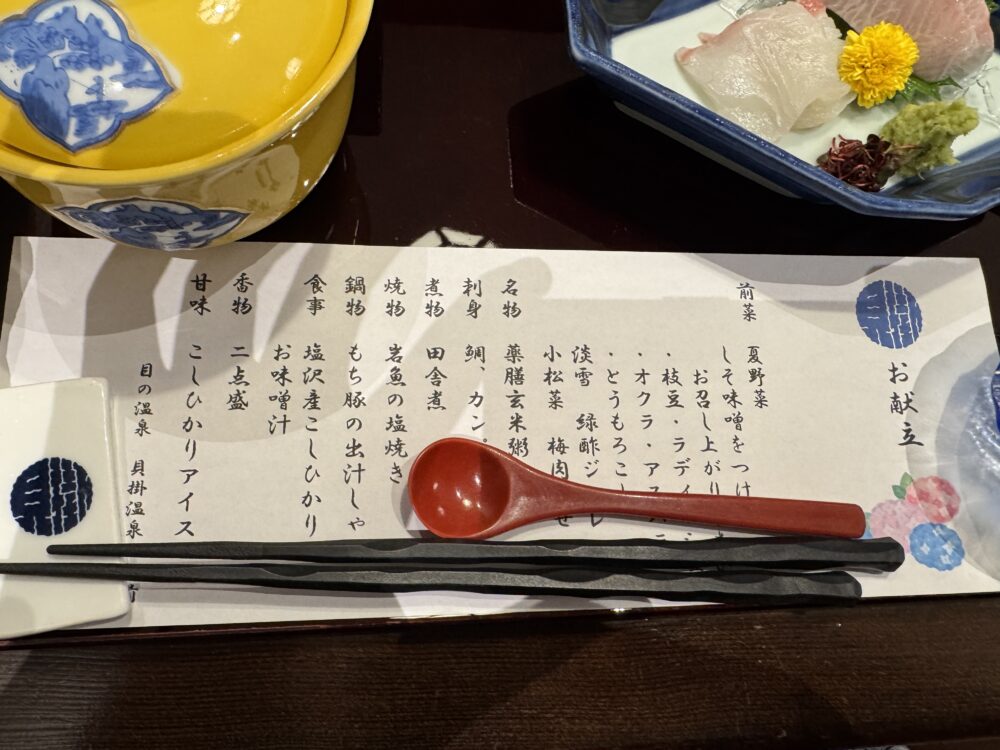 お献立
前菜 夏野菜
しそ味噌をつけ
お召し上がり
・枝豆・ラディ
・オクラ・アス
・とうもろこ
淡雪 緑酢ジ レ
小松菜 梅肉 せ
名物 薬膳玄米粥
刺身 鯛、カン
煮物 田舎煮
焼物 岩魚の塩焼き
鍋物 もち豚の出汁しゃ
食事 塩沢産こしひかり
お味噌汁
香物 二点盛
甘味 こしひかりアイス
目の温泉 貝掛温泉